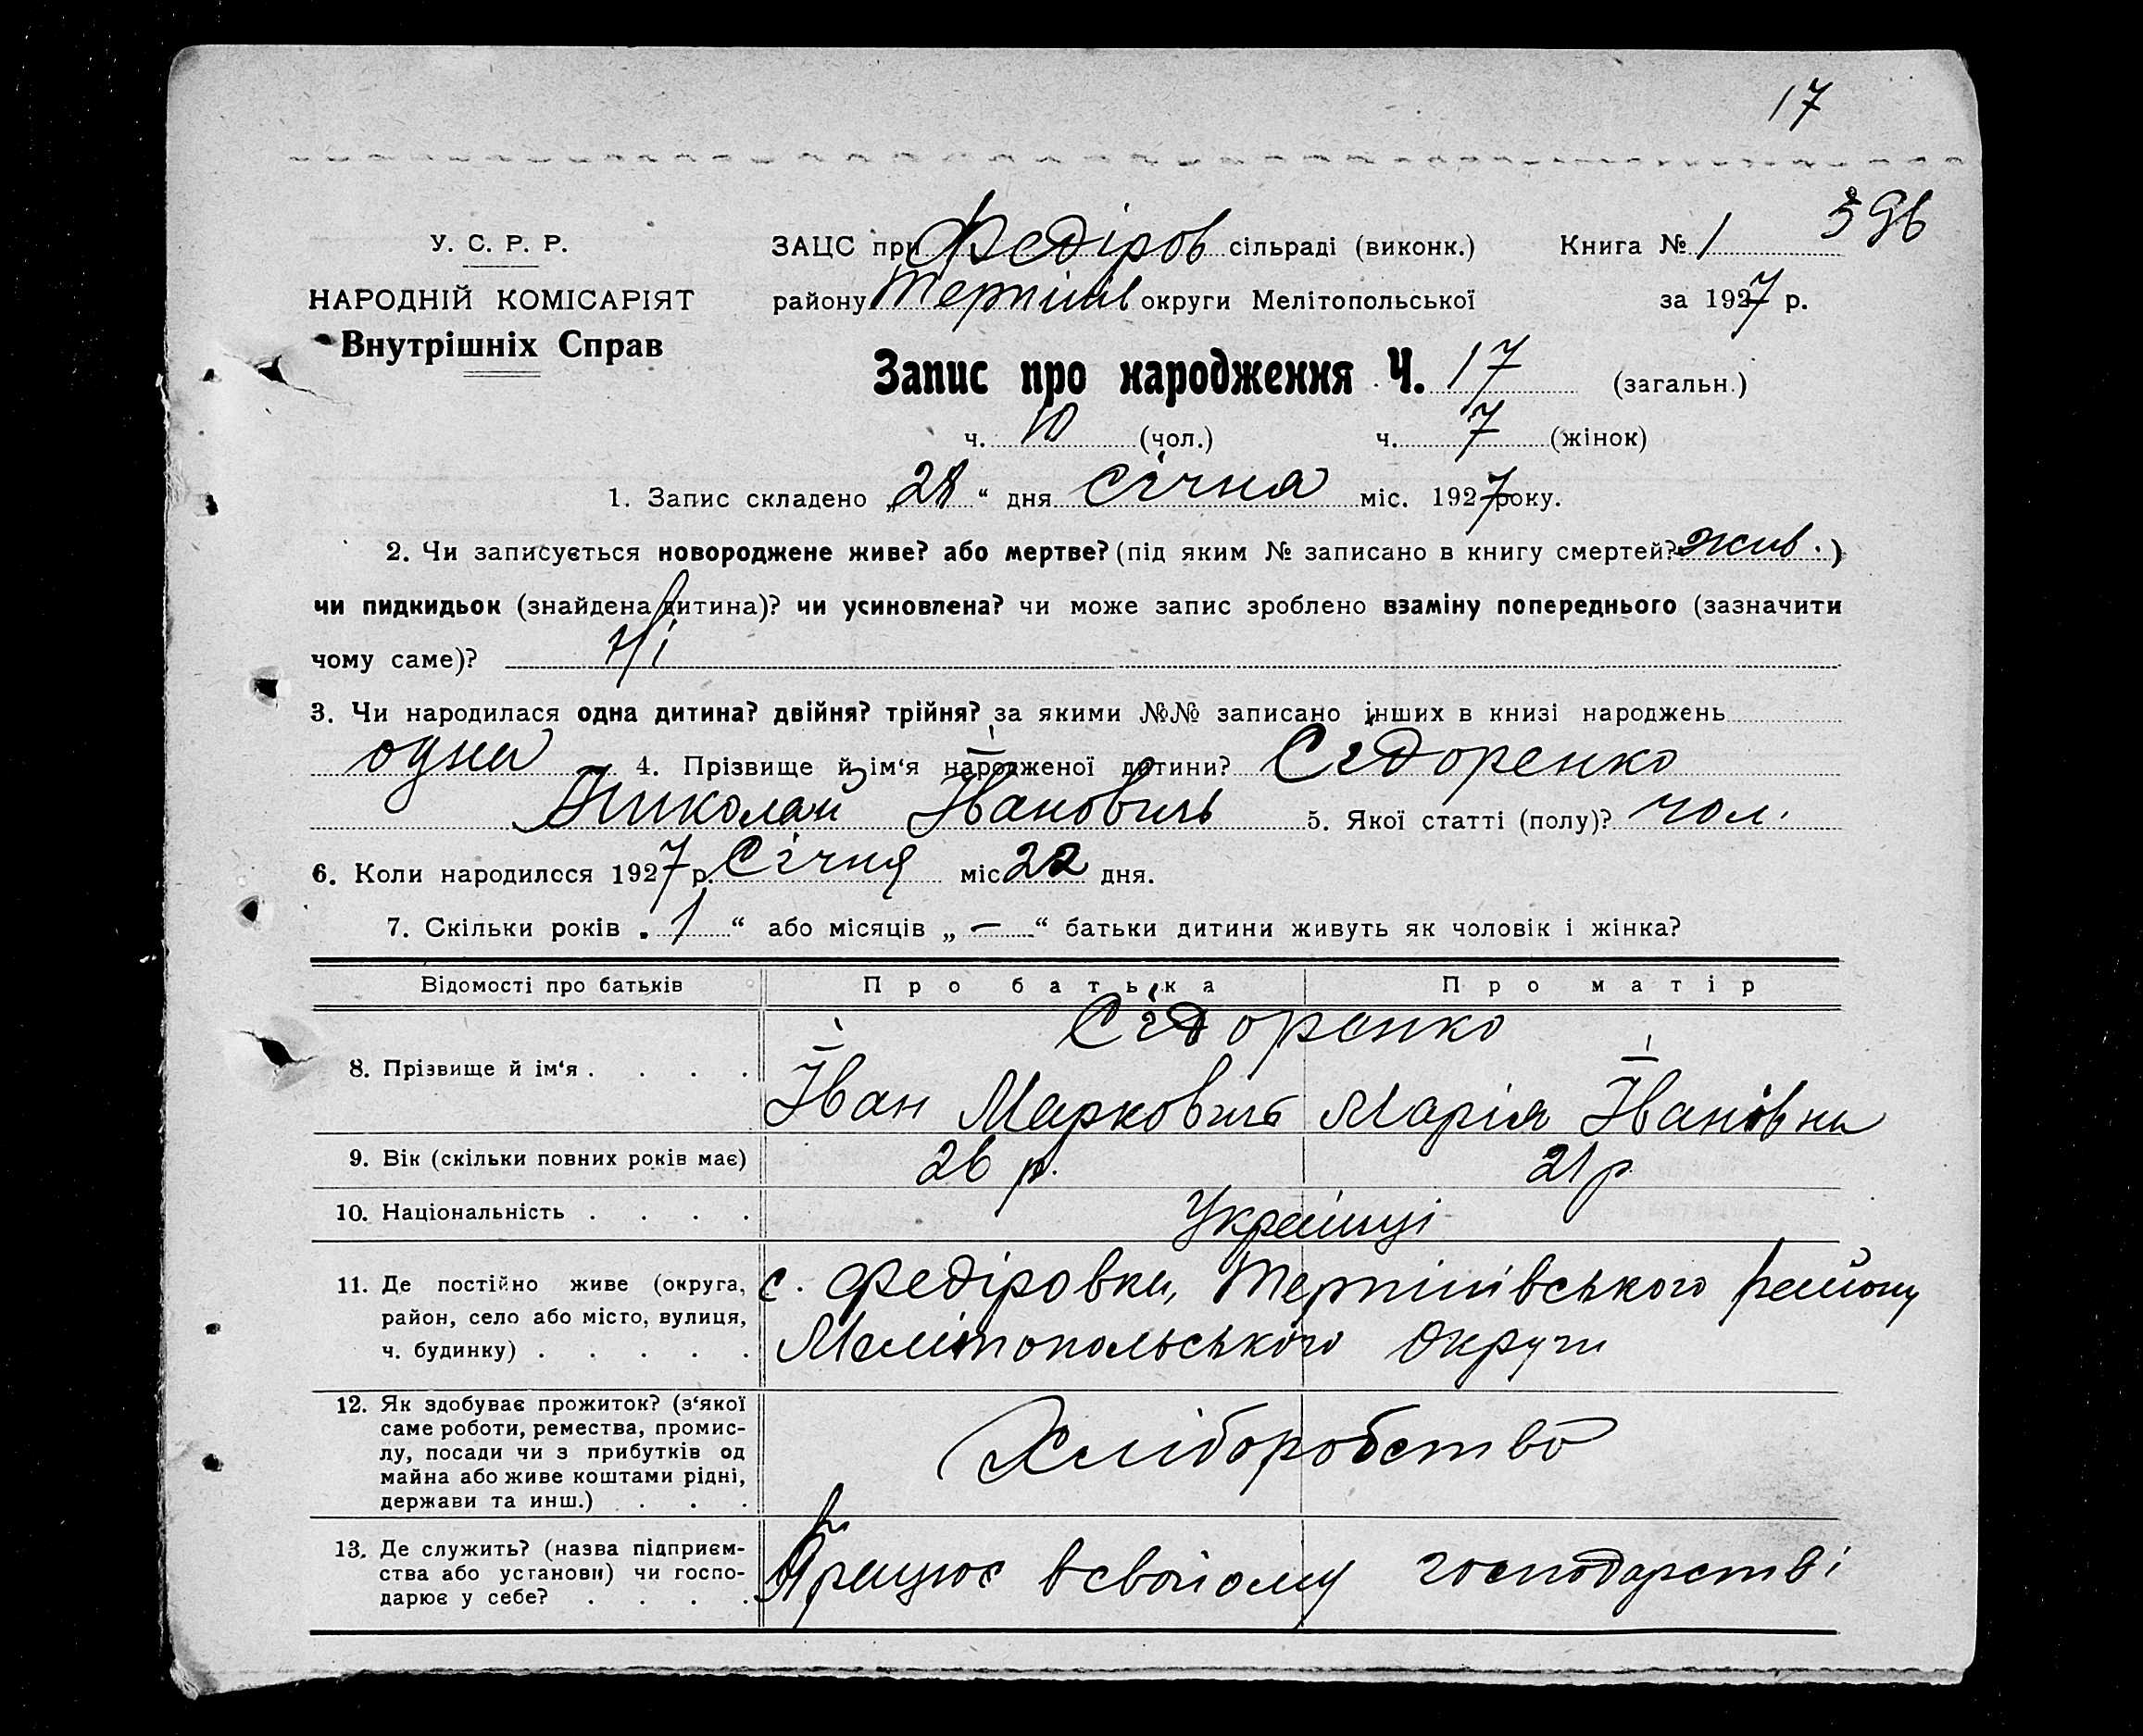 17
396
У. С. Р. Р.
НАРОДНІЙ КОМІСАРІЯТ
Внутрішніх Справ
ЗАЦС при Федіров сільраді (виконк.) Книга № 1
району Терпінів округи Мелітопольської за 1927 р.
Запис про народження Ч. 17 (загальн.)
ч. 10 (чол.) ч. 7 (жінок)
1. Запис складено „28“ дня Січня міс. 1927 року.
2. Чи записується новороджене живе? або мертве? (під яким № записано в книгу смертей? жив.)
чи пидкидьок (знайдена дитина)? чи усиновлена? чи може запис зроблено взаміну попереднього (зазначити
чому саме)? Ні
3. Чи народилася одна дитина? двійня? трійня? за якими №№ записано інших в книзі народжень
одна 4. Прізвище й ім‘я народженої дитини? Сідоренко
Николай Іванович 5. Якої статті (полу)? чол.
6. Коли народилося 1927 р. Січня міс 22 дня.
7. Скільки років „1“ або місяців „—“ батьки дитини живуть як чоловік і жінка?
Відомості про батьків Про батька Про матір
Сідоренко
8. Прізвище й ім‘я . . . . Іван Маркович Марія Іванівна
9. Вік (скільки повних років має) 26 р. 21 р
10. Національність . . . . Українці
11. Де постійно живе (округа, с. Федіровки, Терпінівського району
район, село або місто, вулиця,
ч. будинку) . . . . . Мелітопольського округи
12. Як здобуває прожиток? (з‘якої
саме роботи, ремества, промис-
лу, посади чи з прибутків од
майна або живе коштами рідні,
держави та инш.) . . . Хліборобство
13. Де служить? (назва підприєм-
ства або установи) чи госпо- Працює в свойому господарстві
дарює у себе? . . . .